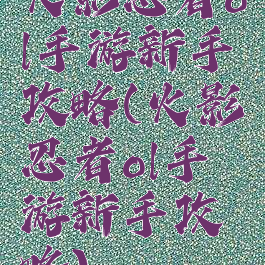 火影忍者o
l手游新手
攻略(火影
忍者ol手
游新手攻
略)